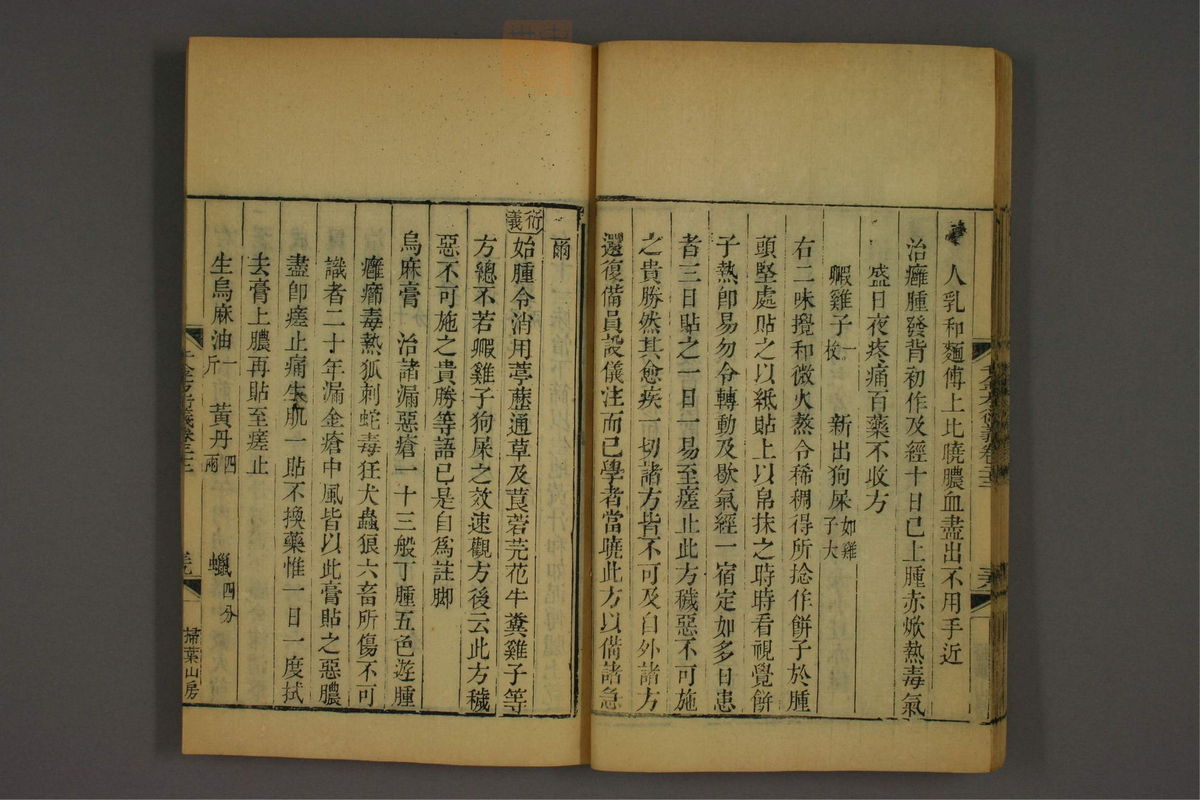 人乳和麵傅上比曉膿血盡出不用手近
治癰腫發背初作及經十日已上腫赤焮熱毒氣
盛日夜疼痛百藥不收方
毈雞子一枚 新出狗屎如雞子大
右二味攪和微火熬令稀稠得所捻作餅子於腫
頭堅處貼之以紙貼上以帛抹之時時看視覺餅
子熱卽易勿令轉動及歇氣經一宿定如多日患
者三日貼之一日一易至瘥止此方穢惡不可施
之貴勝然其愈疾一切諸方皆不可及自外諸方
還復備員設儀注而已學者當曉此方以備諸急
爾
衍義
始腫令消用葶藶通草及莨菪芫花牛糞雞子等
方總不若毈雞子狗屎之效速觀方後云此方穢
惡不可施之貴勝等語已是自爲註脚
烏麻膏 治諸漏惡瘡一十三般丁腫五色遊腫
癰癤毒熱狐刺蛇毒狂犬蟲狼六畜所傷不可
識者二十年漏金瘡中風皆以此膏貼之惡膿
盡卽瘥止痛生肌一貼不換藥惟一日一度拭
去膏上膿再貼至瘥止
生烏麻油一斤 黃丹四兩 蠟四分
掃葉山房